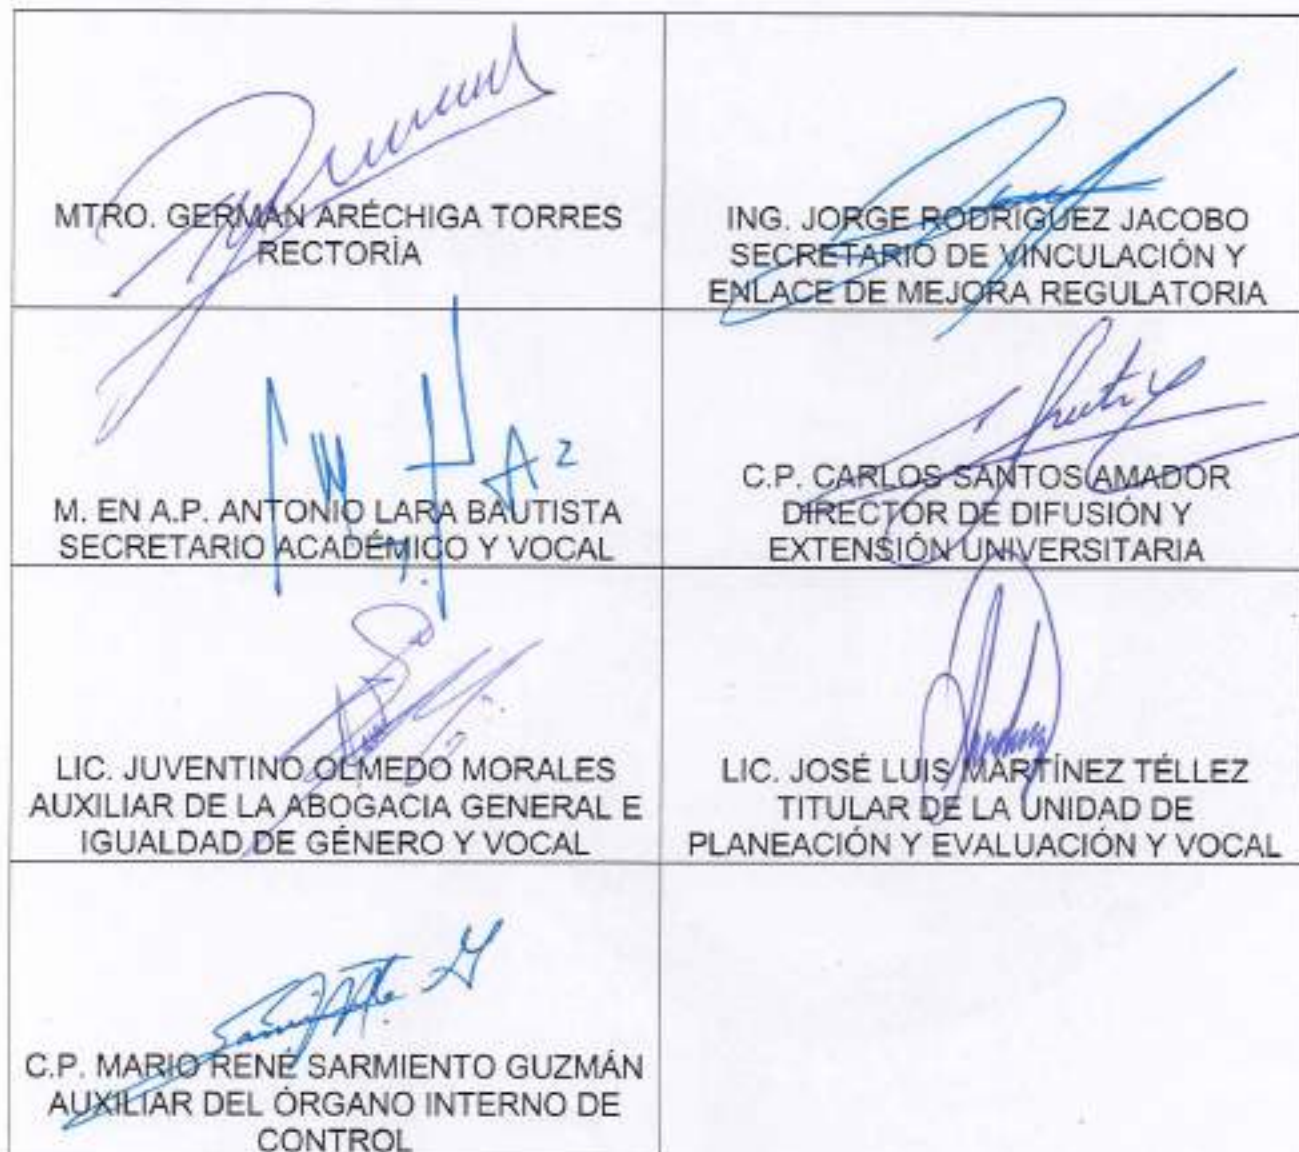 MTRO. GERMÁN ARÉCHIGA TORRES
RECTORÌA
ING. JORGE RODRÍGUEZ JACOBO
SECRETARIO DE VINCULACIÓN Y
ENLACE DE MEJORA REGULATORIA
M. EN A.P. ANTONIO LARA BAUTISTA
SECRETARIO ACADÉMICO Y VOCAL
C.P. CARLOS SANTOS AMADOR
DIRECTOR DE DIFUSIÓN Y
EXTENSIÓN UNIVERSITARIA
LIC. JUVENTINO OLMEDO MORALES
AUXILIAR DE LA ABOGACIA GENERAL E
IGUALDAD DE GÉNERO Y VOCAL
LIC. JOSÉ LUIS MARTÍNEZ TÉLLEZ
TITULAR DE LA UNIDAD DE
PLANEACIÓN Y EVALUACIÓN Y VOCAL
C.P. MARIO RENÉ SARMIENTO GUZMÁN
AUXILIAR DEL ÓRGANO INTERNO DE
CONTROL